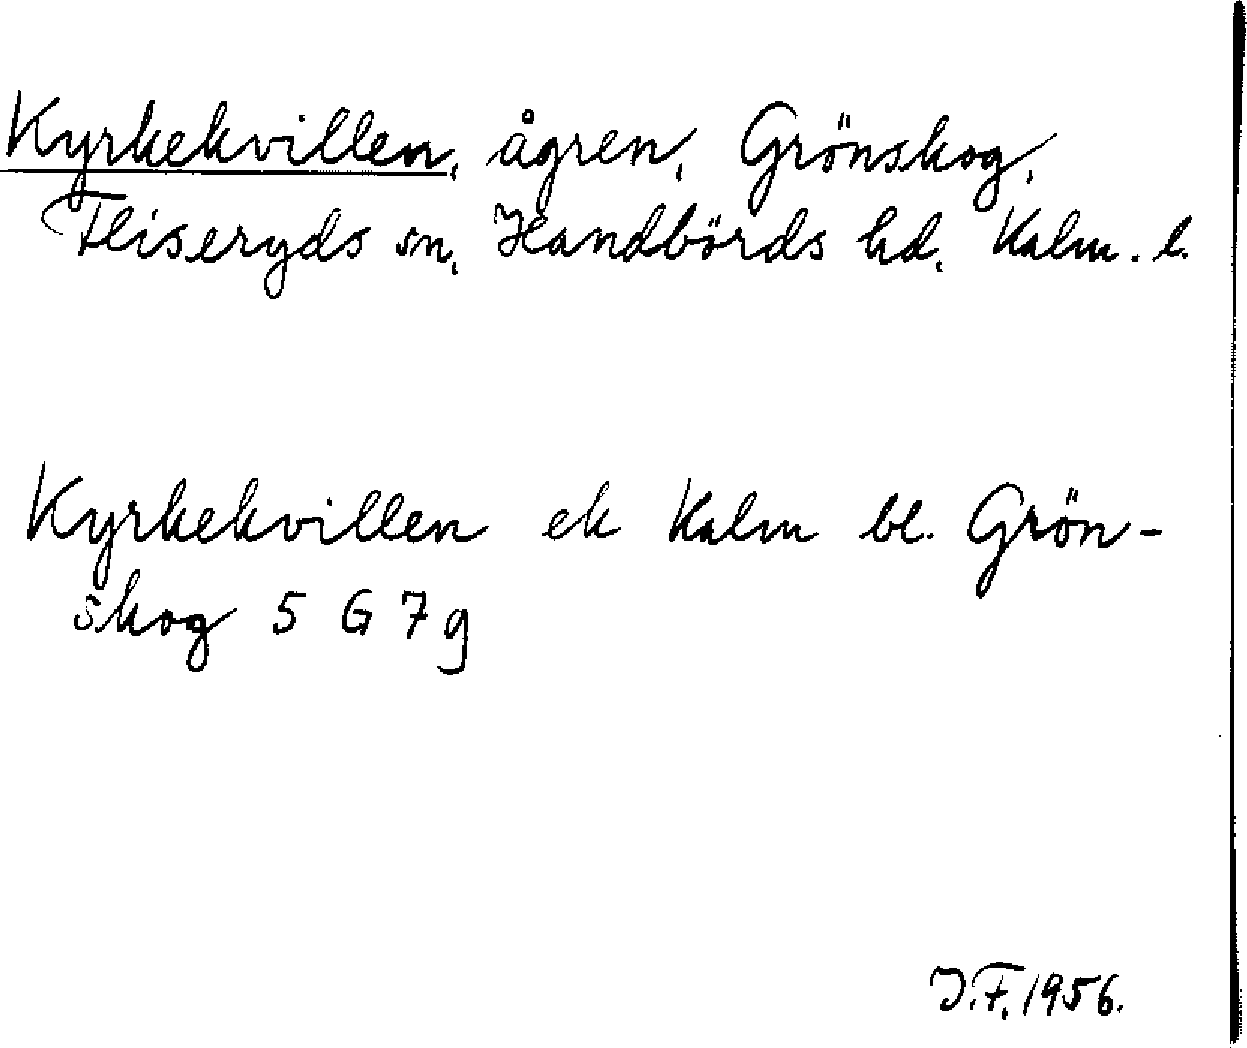 Kyrkekvillen, ågren, Grönskog,
Fliseryds sn, Handbörds hd, Kalm. l.
Kyrkekvillen ek Kalm bl. Grön-
skog 5 G 7 g
J.F. 1956.